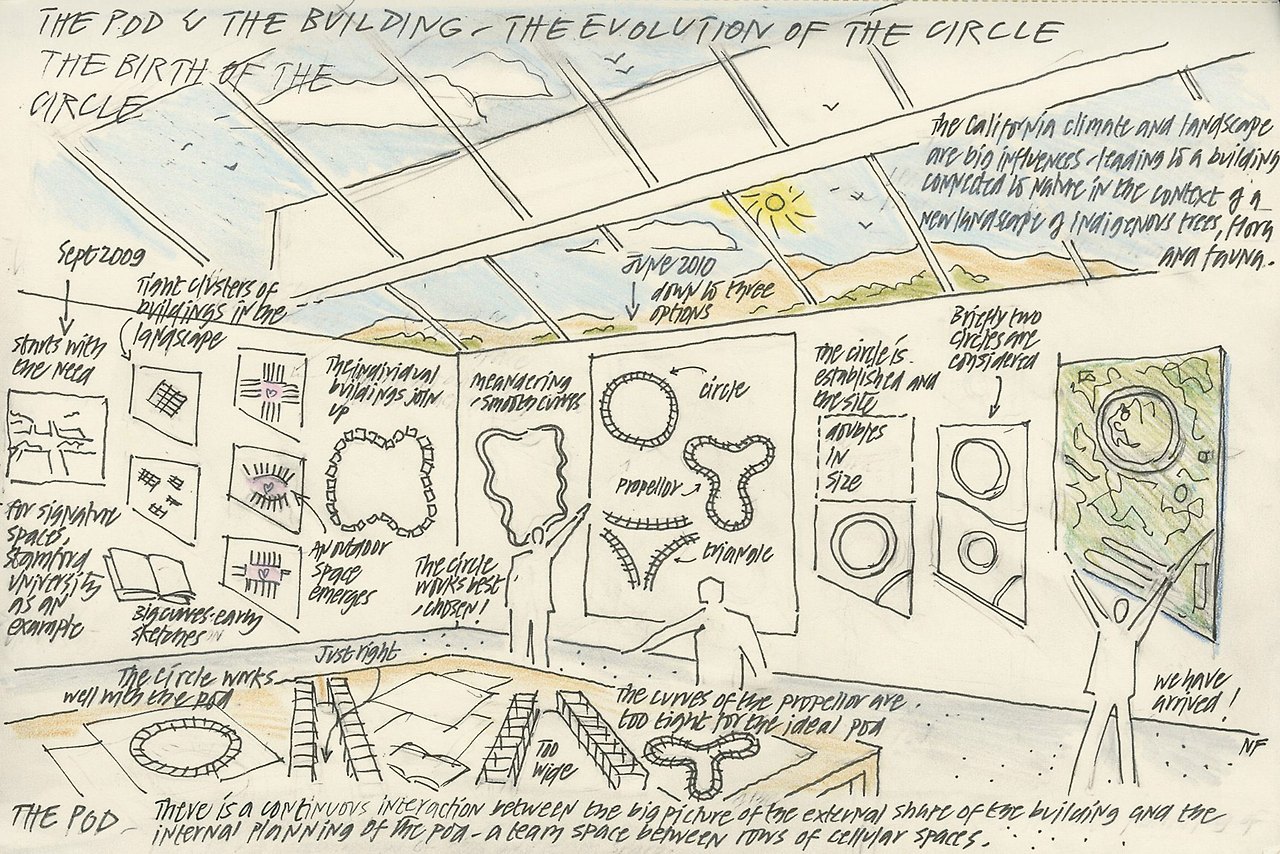 THE POD & THE BUILDING - THE EVOLUTION OF THE CIRCLE
THE BIRTH OF THE
CIRCLE
The California climate and landscape
are big influences - leading to a building
connected to nature in the context of a
new landscape of indigenous trees, flora
and fauna.
Sept 2009
starts with
the need
for signature
space,
Stamford
University
as an
example
Tight clusters of
buildings in the
landscape
Big curves-early
sketches
An outdoor
space
emerges
The individual
buildings join
up
meandering
-smooth curves
The circle
works best
, chosen!
June 2010
down to three
options
circle
propellor
triangle
The circle is
established and
the site
doubles
in
size
Briefly two
circles are
considered
we have
arrived!
NF
Just right
The circle works
well with the pod
Too
wide
The curves of the propellor are
too tight for the ideal pod
THE POD - There is a continuous interaction between the big picture of the external share of the building and the
internal planning of the pod - a team space between rows of cellular spaces.